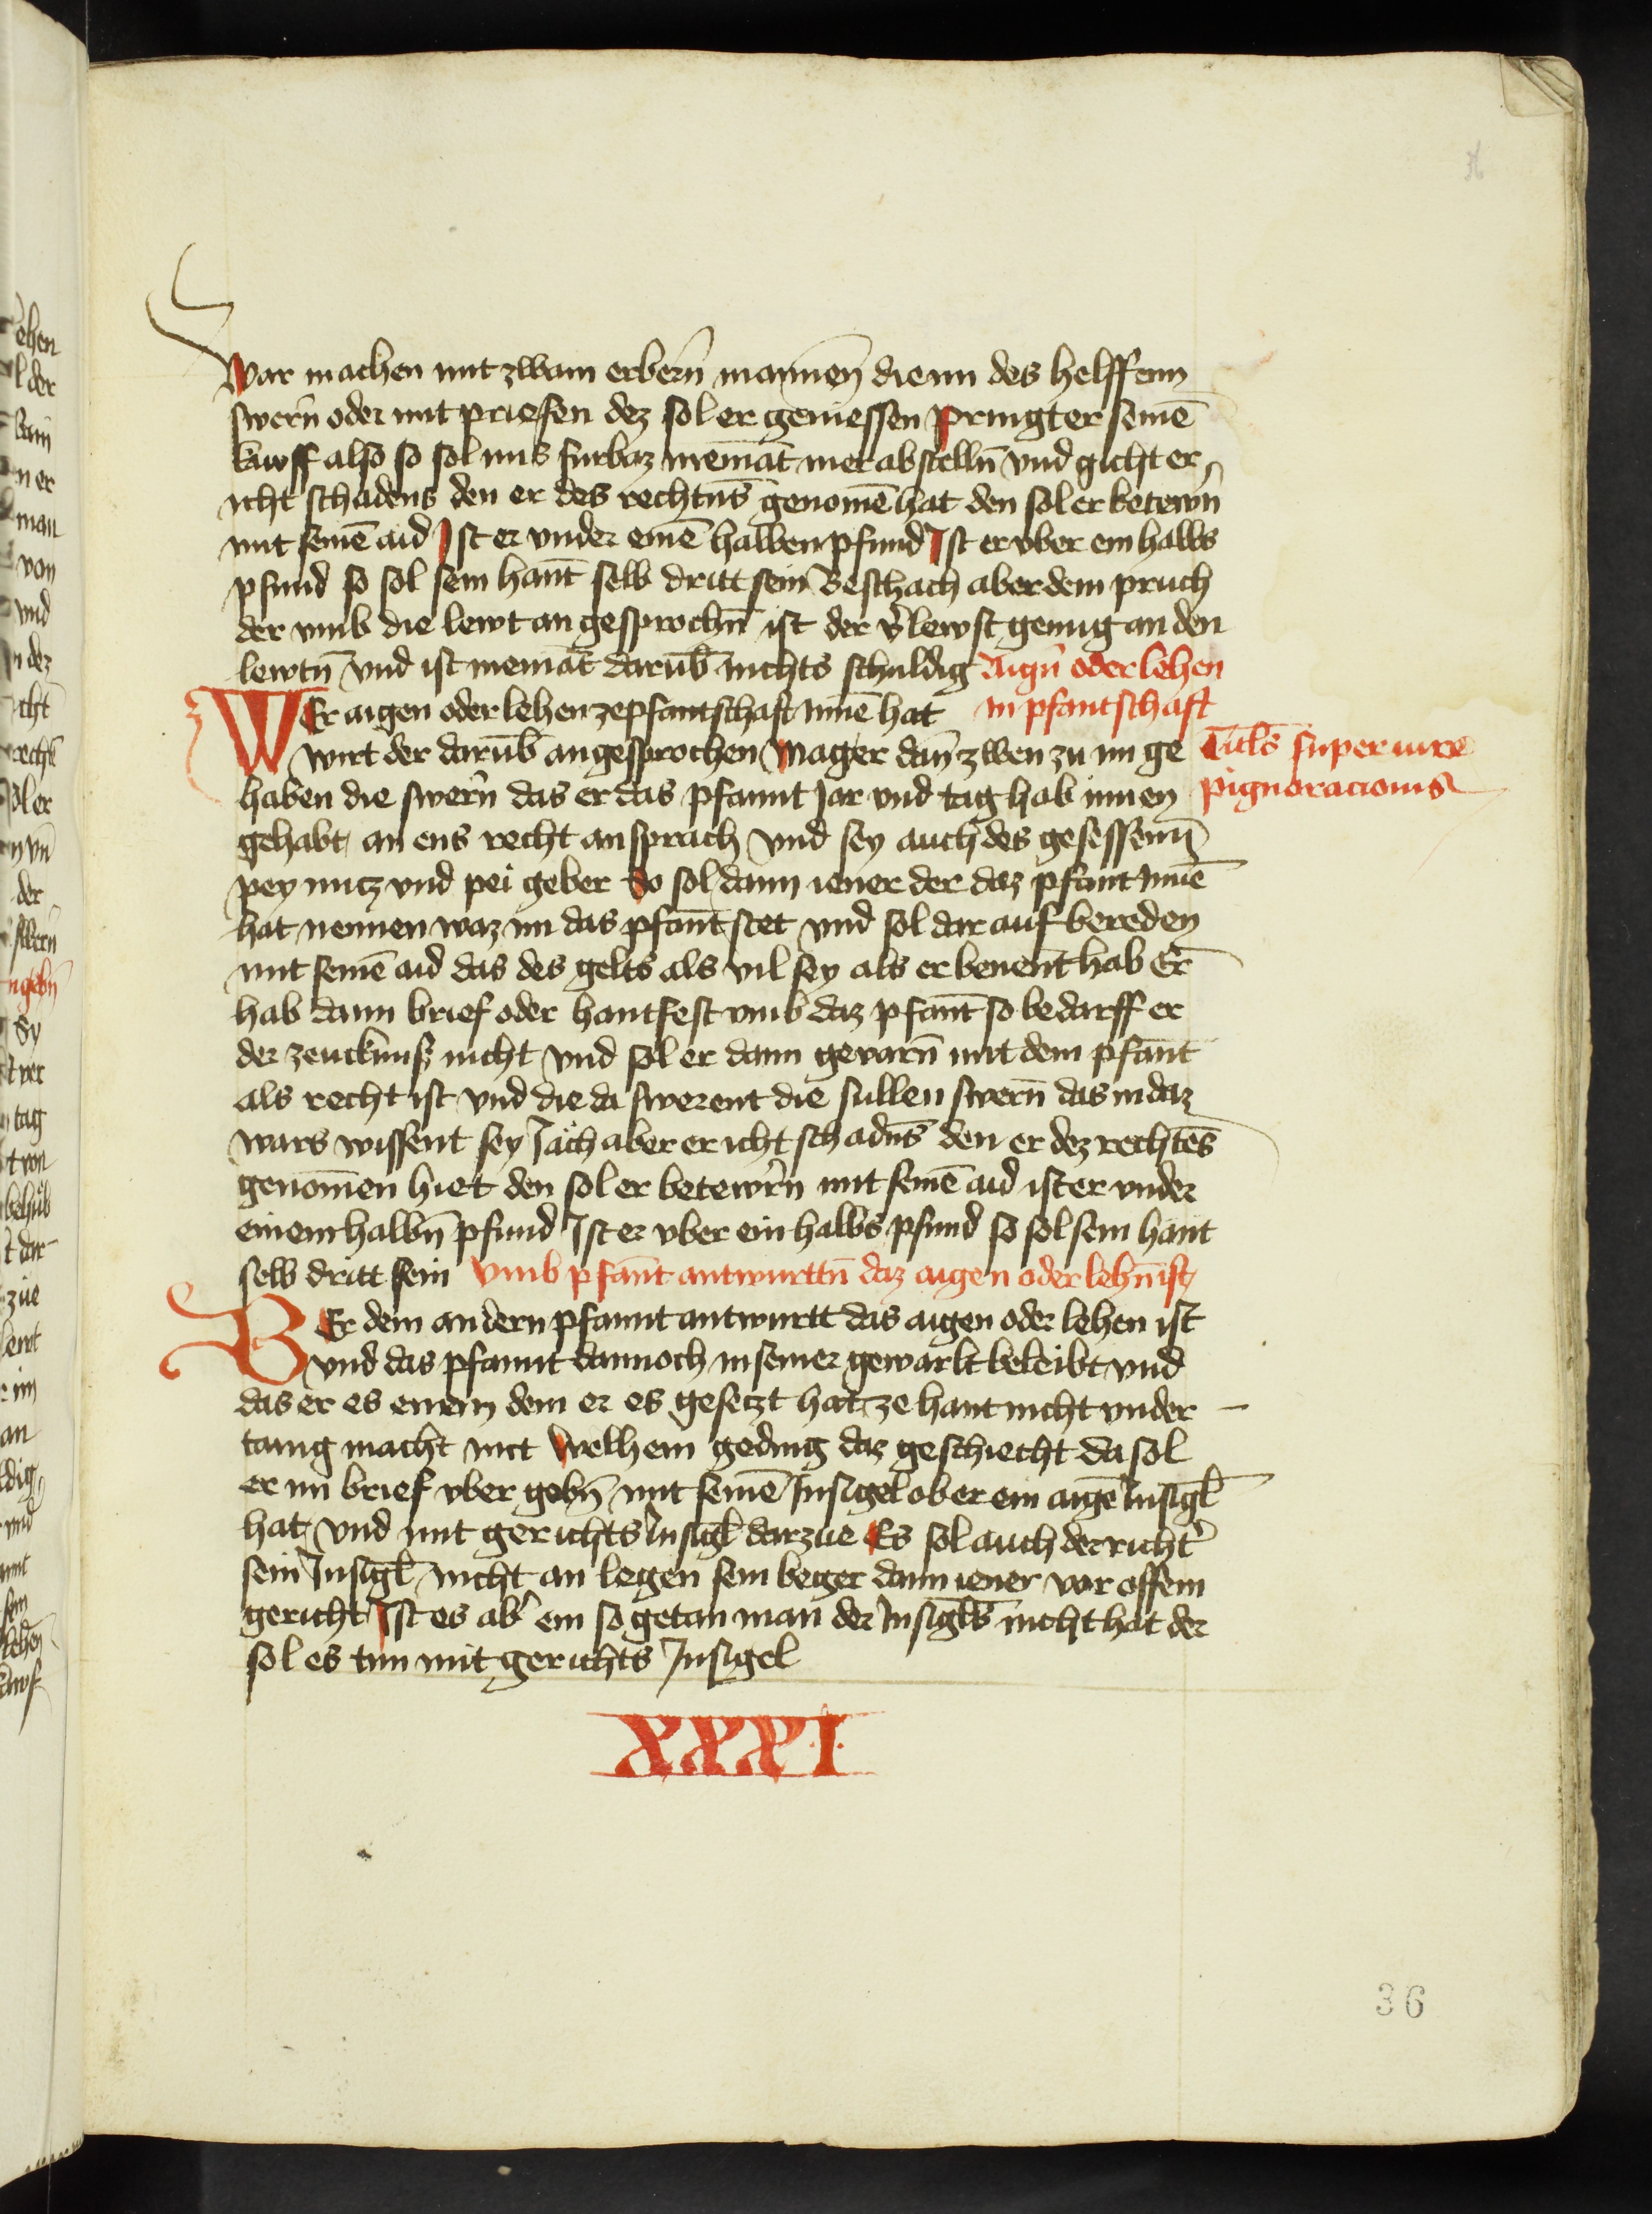 War machen mit zwain erberñ mannen die im des helffenn
swerñ oder mit priefen dez sol er geniessen Pringt er seinē
kawff also so sol ims furbaz niemāt mer abstelln̄ vnd gicht er
icht schadens den er des rechtns̄ genomē hat den sol er betewrn̄
mit seinē aid Ist er vnder einē halben pfund Ist er vber ein halbs
pfund so sol sein hant̄ selb dritt sein Beschach aber dem pruch
der vmb die lewt an gesprochn̄ ist der v̄lewst genug an den
lewtn̄ vnd ist niemāt darūb nichts schuldig Aign̄ oder lehen
WEr aigen oder lehen ze pfantschaft Innē hat in pfantschaft
wirt der darūb angesprochen Mag er dan̄ zwen zu im ge
Titls̄ super iure
haben die swern̄ das er das pfannt Jar vnd tag hab innen
pignoracionis
gehabt an ens recht ansprach vnd sey auch des gesessenn̄
pey nutz vnd pei geber So sol dann iener der daz pfant Innē
hat nennen waz im das pfant̄ stet vnd sol dar auf bereden
mit seinē aid das des gelts als vil sey als er benent̄ hab Er
hab dann brief oder hantfest vmb daz pfant̄ so bedarff er
der zeucknuß nicht vnd sol er dann gevarn̄ mit dem pfant̄
als recht ist vnd die da swerent die sullen swern̄ das in daz
wars wissent sey Jach aber er icht schadns̄ den er dez rechtes̄
genomen̄ hiet den sol er betewrn̄ mit seinē aid ist er vnder
einem halbn̄ pfund Ist er vber ein halbs pfund so sol sein hant
selb dritt sein Vmb pfant̄ antwurttn̄ daz aigen oder lehn̄ ist
BEr dem andern pfannt antwurtt das aigen oder lehen ist
vnd das pfannt dannoch in seiner gewarlt beleibt vnd
das er es einem dem er es gesetzt hat ze hant nicht vnder
tanig macht mit welhem geding daz geschiecht da sol
er im brief vber gebn̄ mit seinē Insigel ob er ein aigē Insigl̄
hat vnd mit gerichts Insigl̄ darzue Es sol auch der richt̓
sein Insigl̄ nicht an legen sein beger dann iener vor offem
gericht Ist es ab̓ ein so getan man der Insigls̄ nicht hat der
sol es tun mit gerichts Insigel
XXXI
36